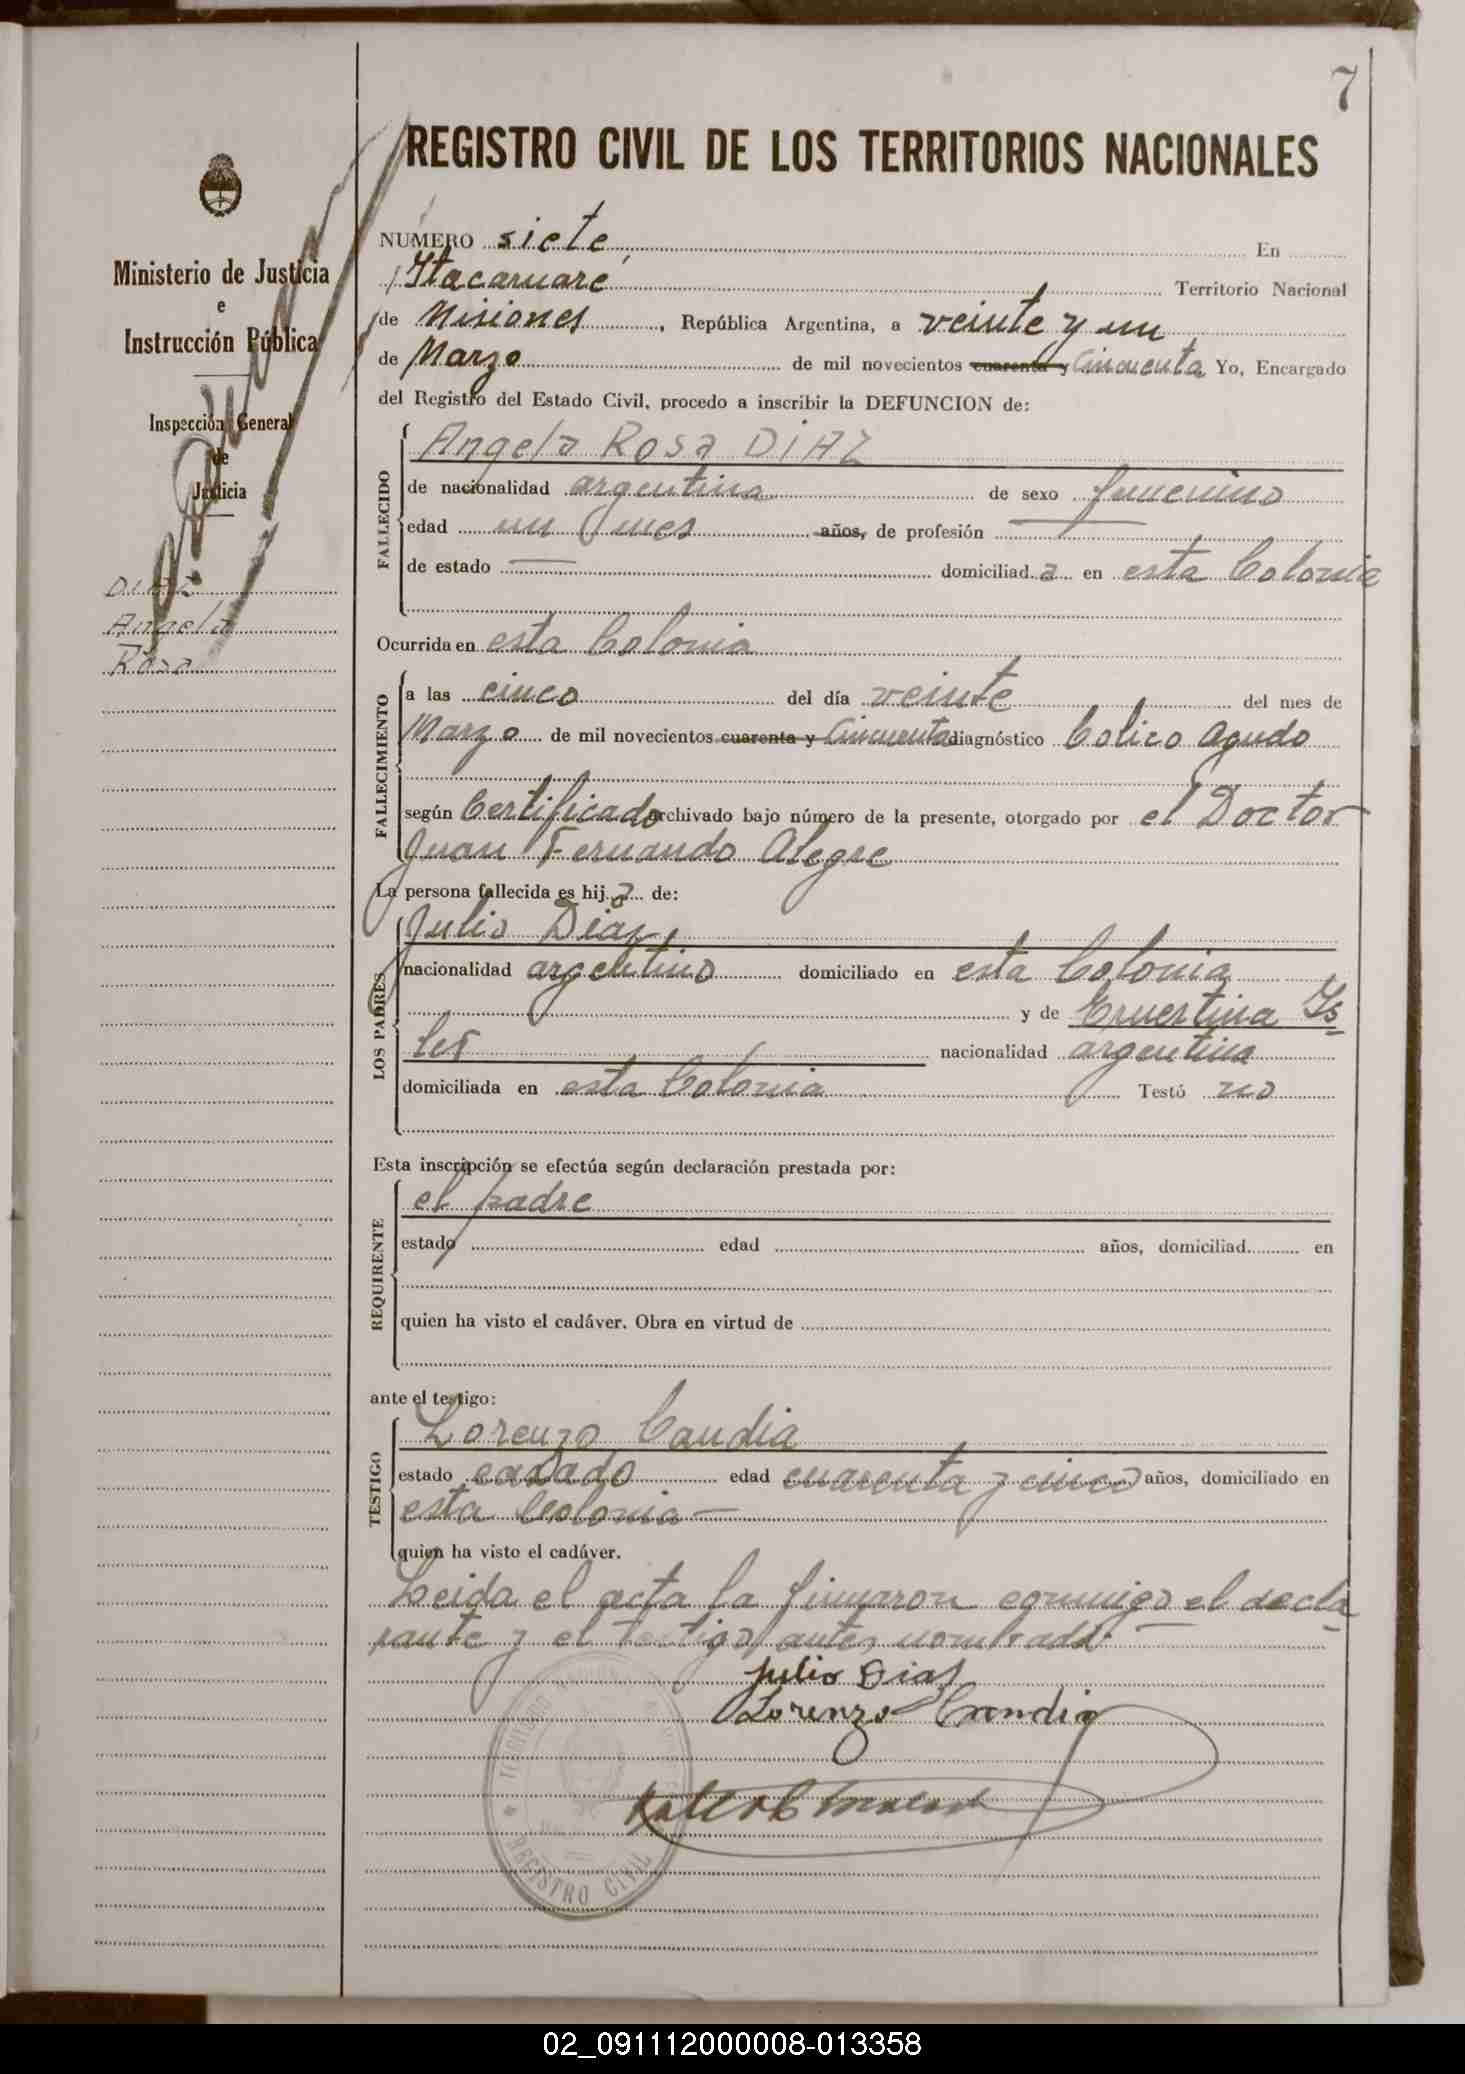 7
REGISTRO CIVIL DE LOS TERRITORIOS NACIONALES
Ministerio de Justicia
e
Instrucción Pública
Inspección General
de
Justicia
DIAZ
Angela
Rosa
NÚMERO siete, En
Itacaruaré Territorio Nacional
de Misiones, República Argentina, a veinte y un
de Marzo de mil novecientos cuarenta y Cincuenta Yo, Encargado
del Registro del Estado Civil, procedo a inscribir la DEFUNCION de:
FALLECIDO
Angela Rosa DIAZ
de nacionalidad argentina de sexo femenino
edad un mes años, de profesión —
de estado — domiciliad a en esta Colonia
Ocurrida en esta Colonia
FALLECIMIENTO
a las cinco del día veinte del mes de
Marzo de mil novecientos cuarenta y Cincuenta diagnóstico Colico Agudo
según Certificado archivado bajo número de la presente, otorgado por el Doctor
Juan Fernando Alegre
La persona fallecida es hij a de:
LOS PADRES
Julio Diaz
nacionalidad argentino domiciliado en esta Colonia
y de Ernestina
nacionalidad argentina
domiciliada en esta Colonia Testó no
Esta inscripción se efectúa según declaración prestada por:
REQUIRENTE
el padre
estado edad años, domiciliad en
quien ha visto el cadáver. Obra en virtud de
ante el testigo:
TESTIGO
Lorenzo Candia
estado casado edad cuarenta y cinco años, domiciliado en
esta Colonia —
quien ha visto el cadáver.
Leida el acta la firmaron conmigo el decla
rante y el testigo antes nombrado —
Julio Dias
Lorenzo Candia
REGISTRO CIVIL
02_091112000008-013358